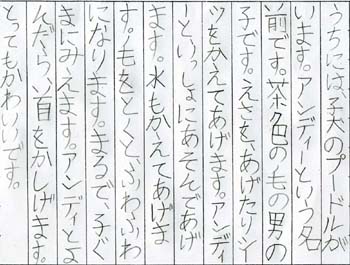 うちには、子犬のプードルが
います。アンディーという名
前です。茶色の毛の男の
子です。えさを、あげたりシー
ツをかえてあげます。アンディ
ーといっしょにあそんであげ
ます。水もかえてあげま
す。毛をとくと、ふわふわ
になります。まるで、子ぐ
まにみえます。アンディとよ
んだら、首をかしげます。
とってもかわいいです。